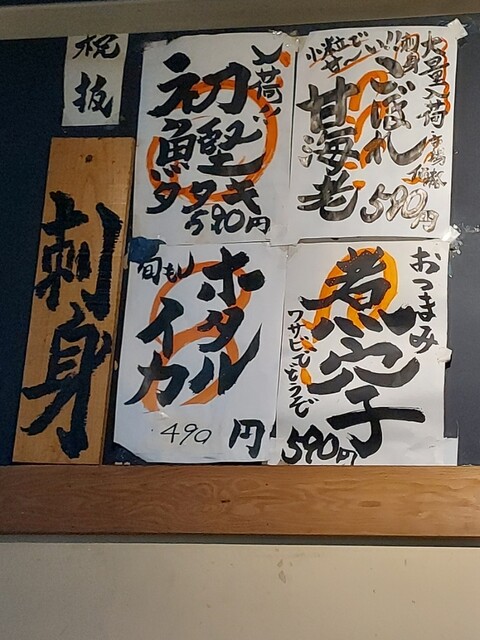 税抜
刺身
入荷!!
初鰹
タタキ
590円
大量入荷
刺身
小粒で甘〜い!!
こぼれ
甘海老
590円
旬もし
ホタル
イカ
490円
おつまみ
煮穴子
ワサビでどうぞ
590円